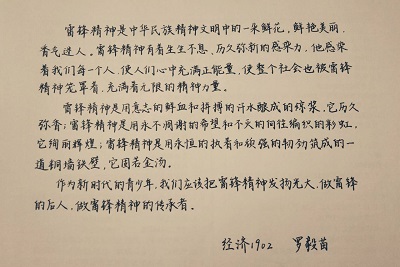 雷锋精神是中华民族精神文明中的一朵鲜花，鲜艳美丽、
香气迷人。雷锋精神有着生生不息、历久弥新的感染力，他感染
着我们每一个人，使人们心中充满正能量，使整个社会也被雷锋
精神笼罩着，充满着无限的精神力量。
雷锋精神是用意志的鲜血和拼搏的汗水酿成的琼浆，它历久
弥香；雷锋精神是用永不凋谢的希望和不灭的向往编织的彩虹，
它绚丽辉煌；雷锋精神是用永恒的执着和顽强的韧劲筑成的一
道铜墙铁壁，它固若金汤。
作为新时代的青少年，我们应该把雷锋精神发扬光大，做雷锋
的后人，做雷锋精神的传承者。
经济1902 罗毅苗